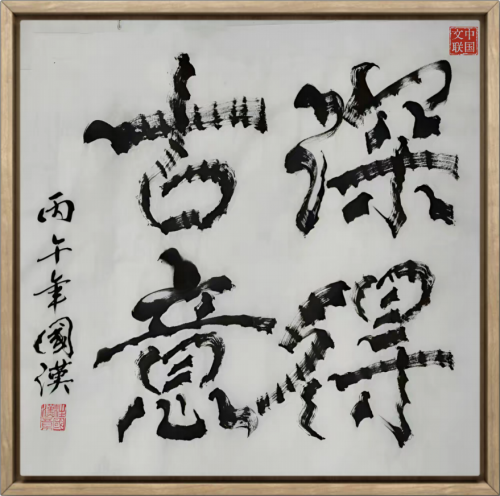 深得
古意
丙午年國漢
中国
文联